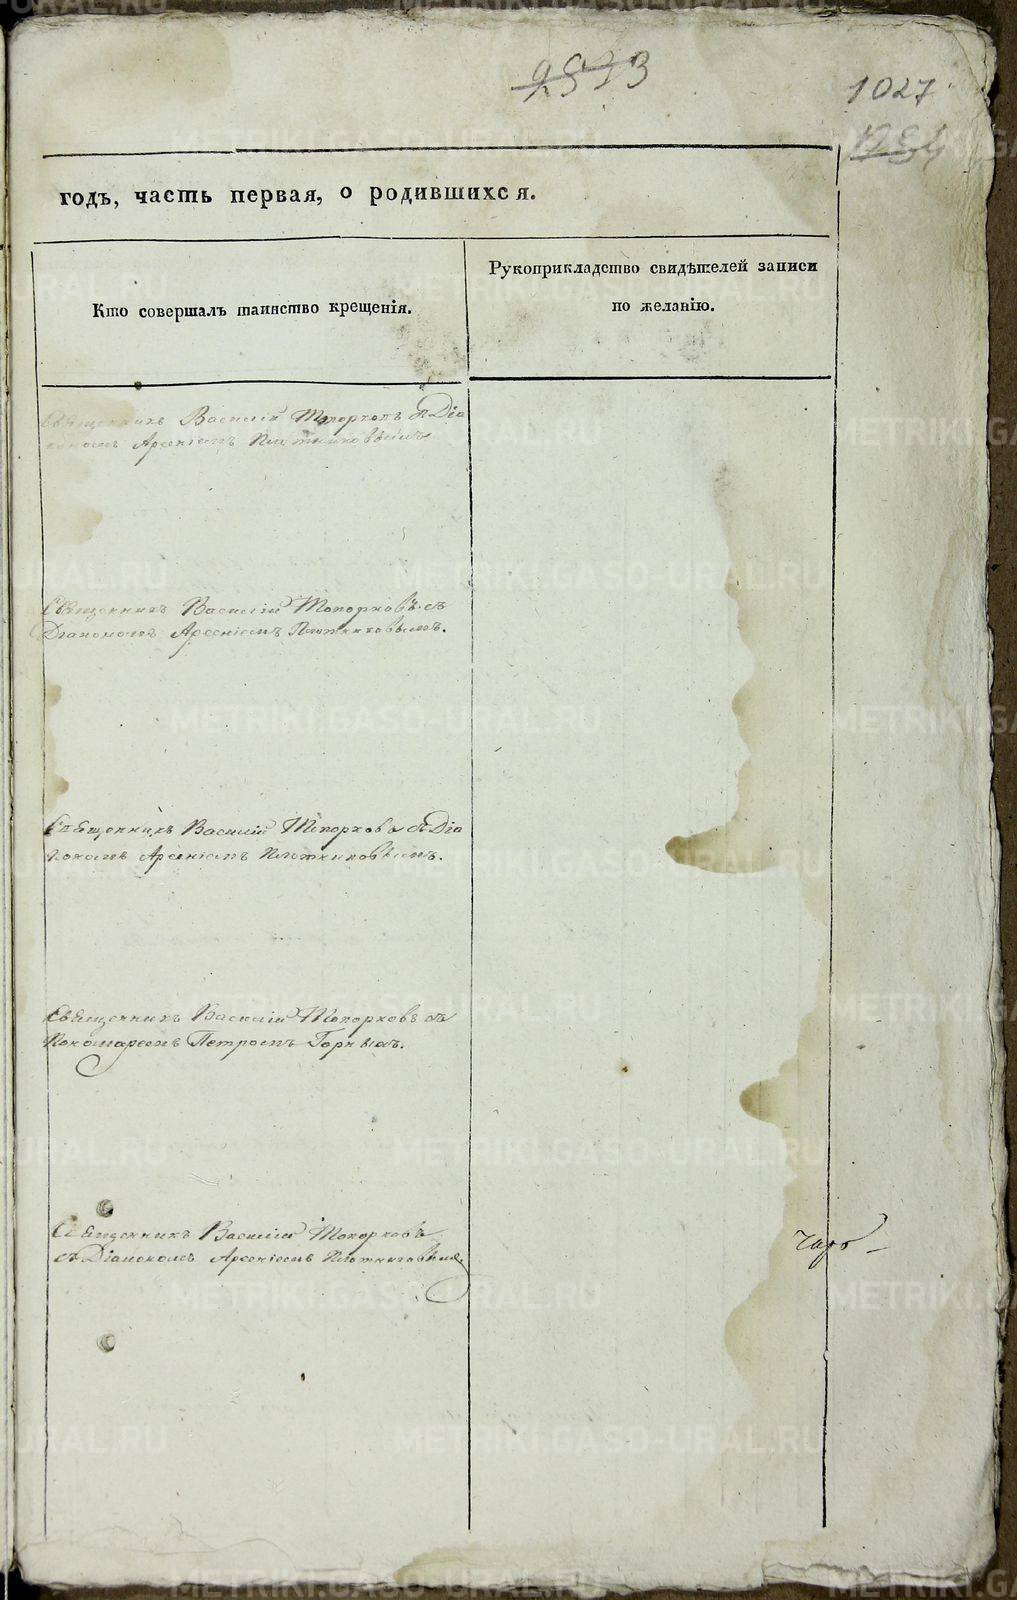 2533
1027
годъ, часть первая, о родившихся.
Кто совершалъ таинство крещенія.
Рукоприкладство свидѣтелей записи
по желанію.
Священникъ Василій Топорковъ съ Діа
кономъ Арсеніемъ Плотниковымъ
Священникъ Василій Топорковъ съ
Діакономъ Арсеніемъ Плотниковымъ.
Священникъ Василій Топорковъ съ Діа
кономъ Арсеніемъ Плотниковымъ.
Священникъ Василій Топорковъ съ
Пономаремъ Петромъ Горныхъ.
Священникъ Василій Топорковъ
съ Діакономъ Арсеніемъ Плотниковымъ.
METRIKI.GASO-URAL.RU